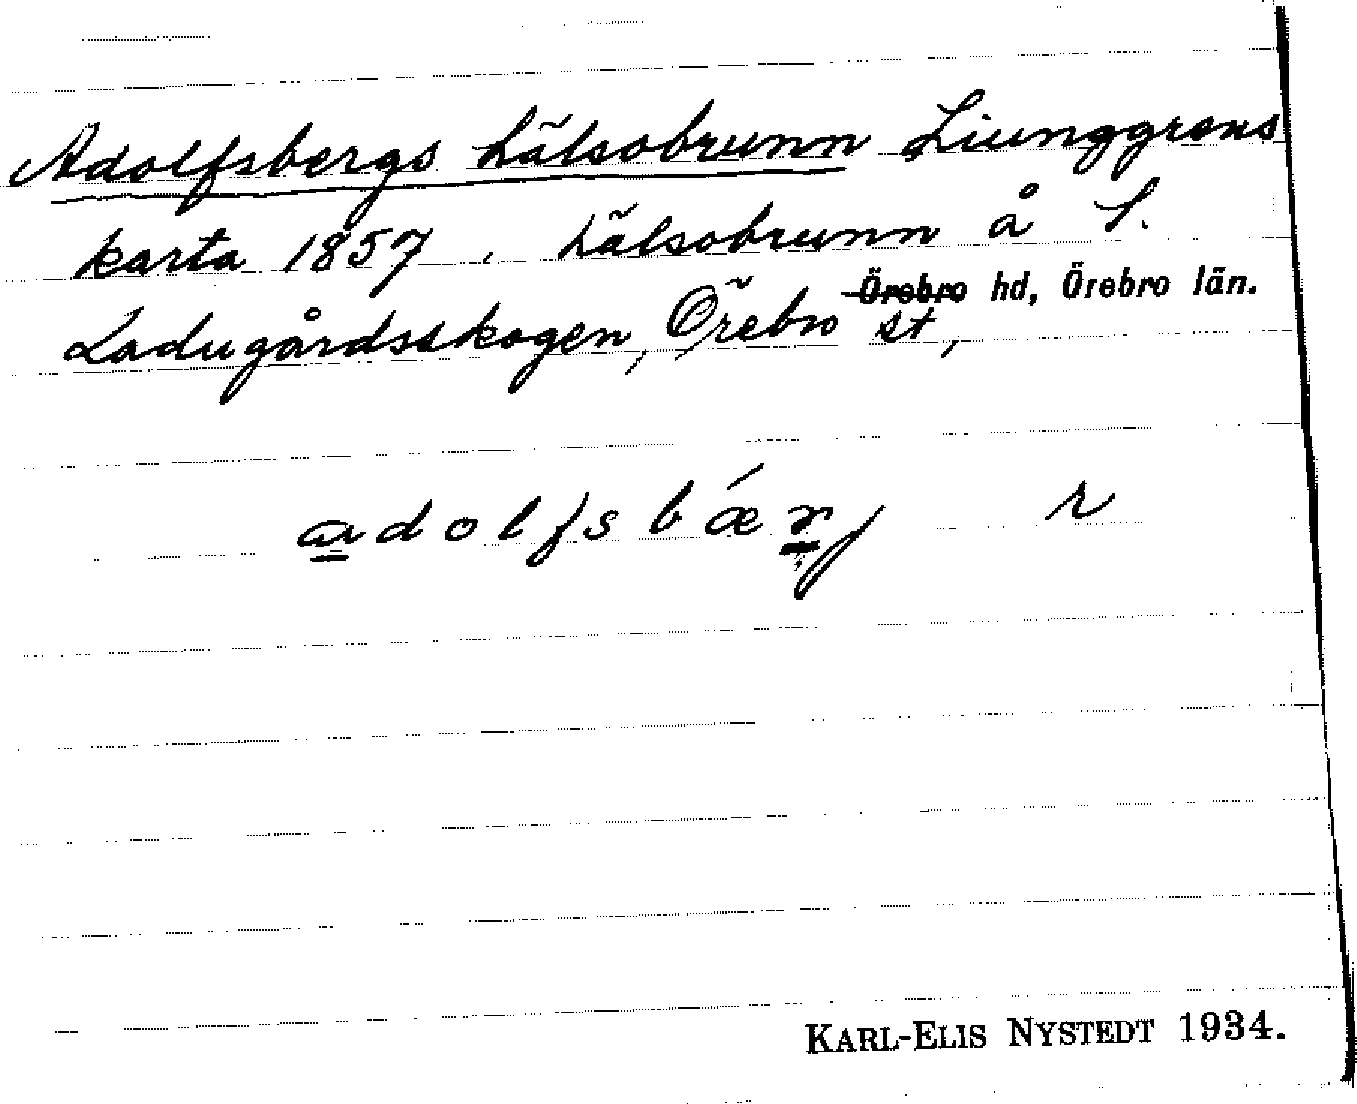 Adolfsbergs hälsobrunn Liunggrens
karta 1857, hälsobrunn å S.
Örebro hd, Örebro län.
Ladugårdsskogen, Örebro st,
adolfsbǽrj r
KARL-ELIS NYSTEDT 1934.